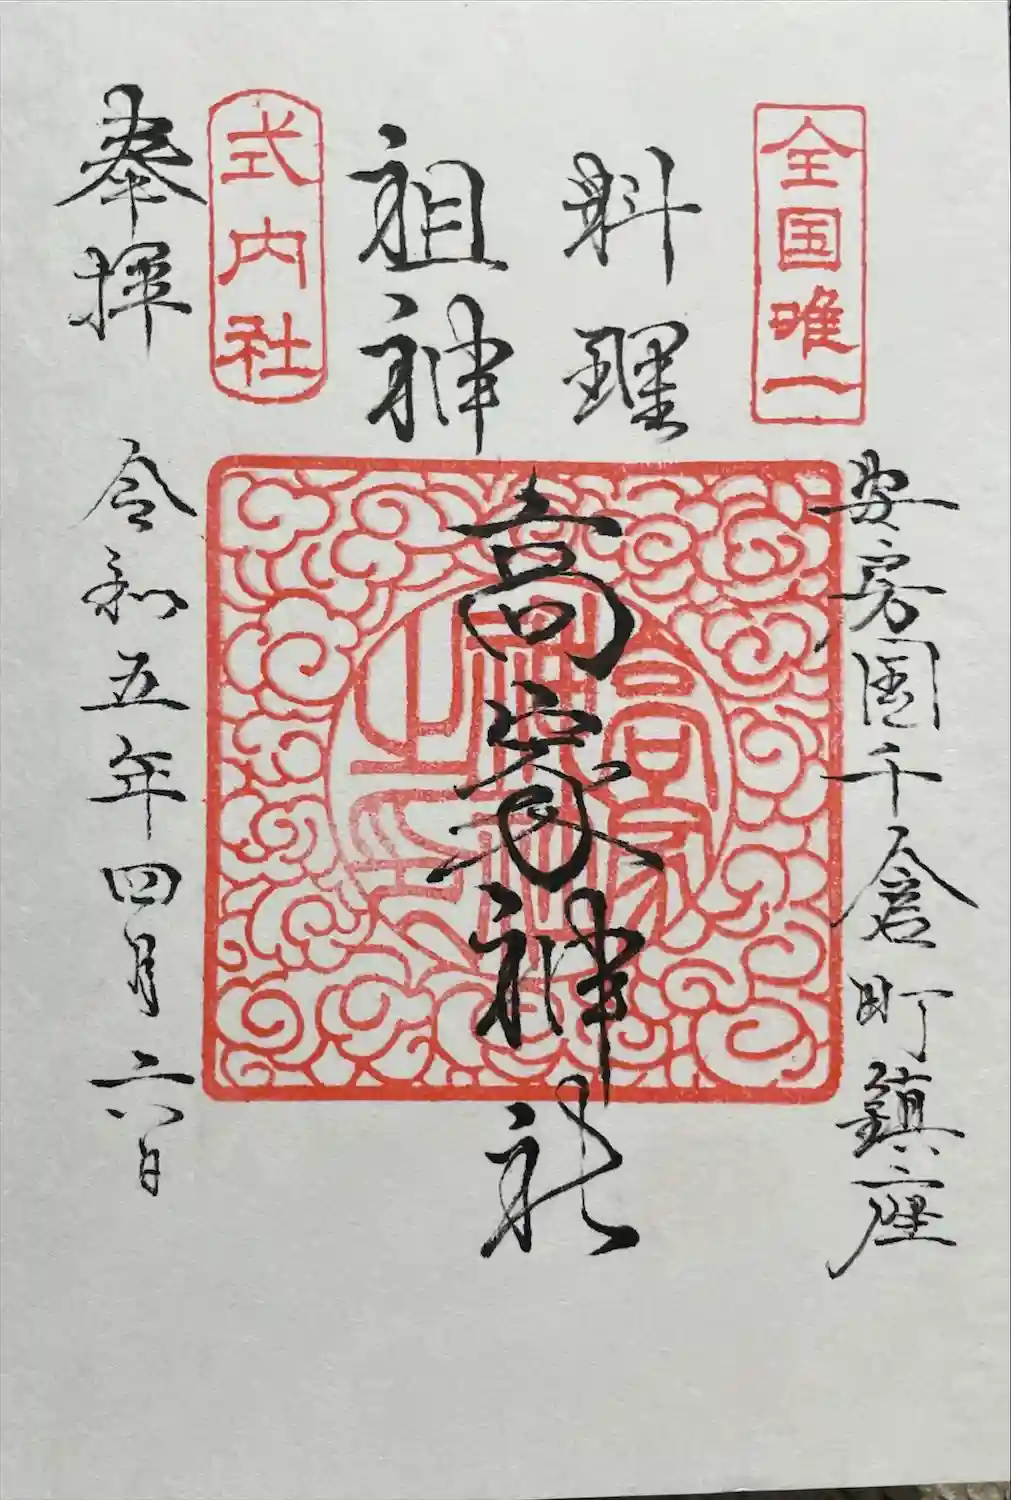 全国唯一
安房国千倉町鎮座
料理
祖神
高家神社
式内社
奉拝
令和五年四月六日